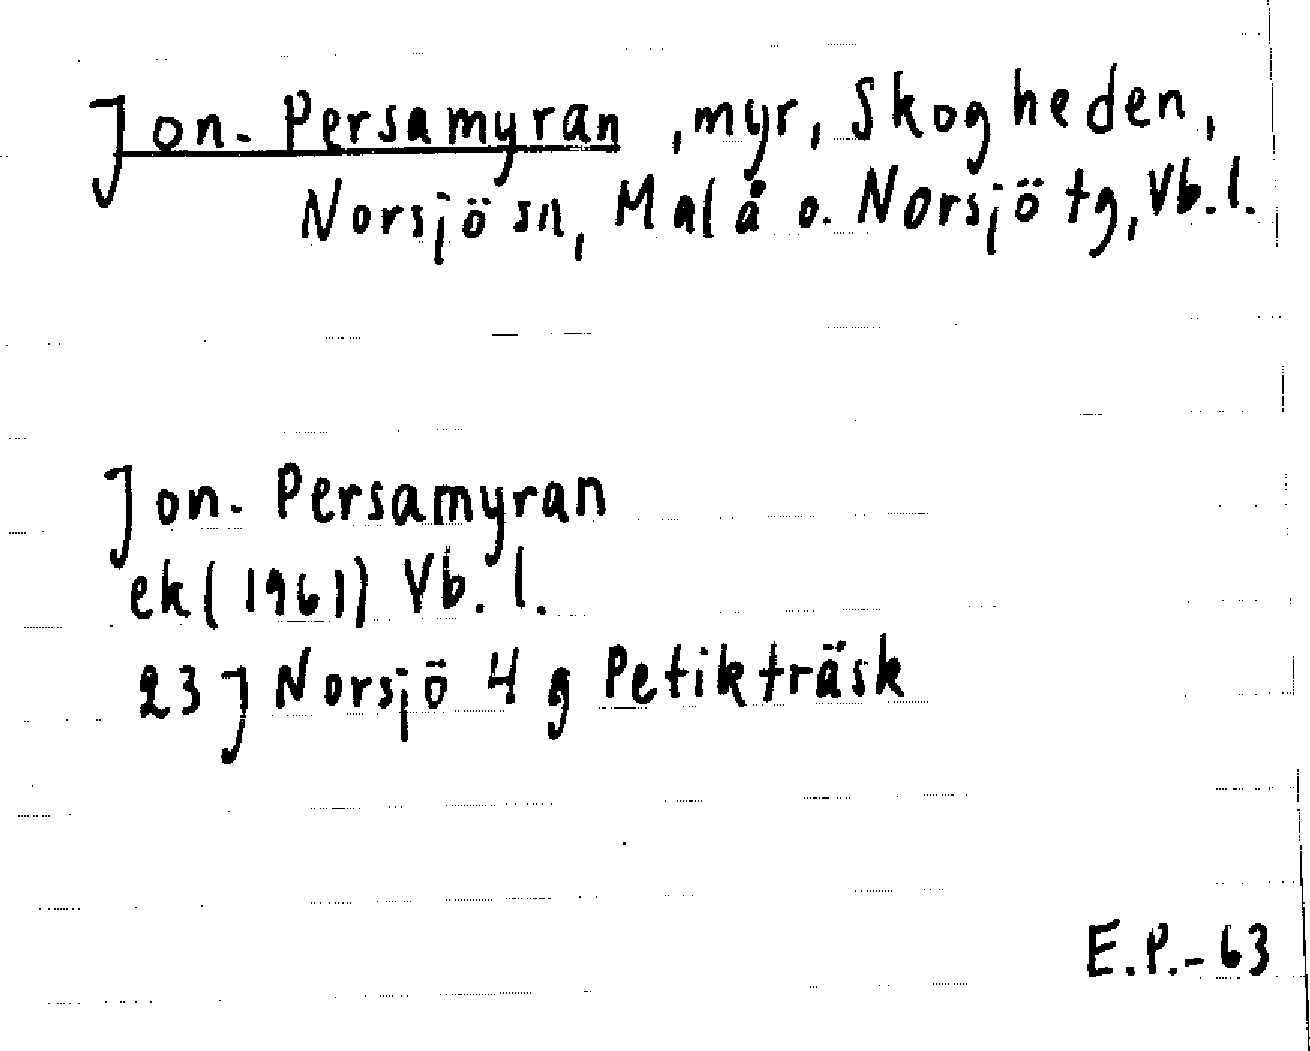 Jon-Persamyran, myr, Skogheden,
Norsjö sn, Malå o. Norsjö tg, Vb.l.
Jon-Persamyran
ek (1961) Vb.l.
23 J Norsjö 4 g Petikträsk
E.P.-63